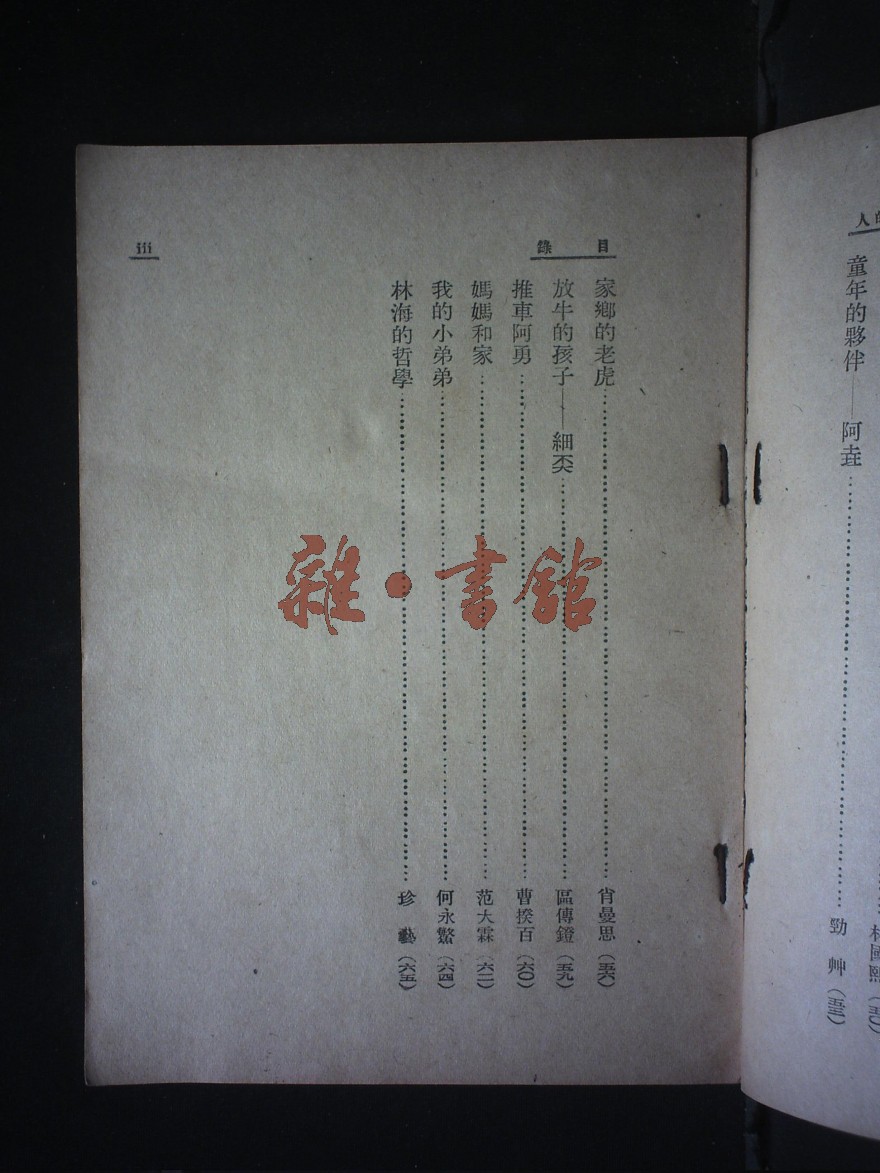 人的
童年的夥伴——阿垚……勁艸（五三）
目錄
iii
家鄉的老虎……肖曼思（五六）
放牛的孩子——細奀……區傳鐙（五九）
推車阿勇……曹揆百（六〇）
媽媽和家……范大霖（六二）
我的小弟弟……何永鰵（六四）
林海的哲學……珍藝（六五）
雜·書館